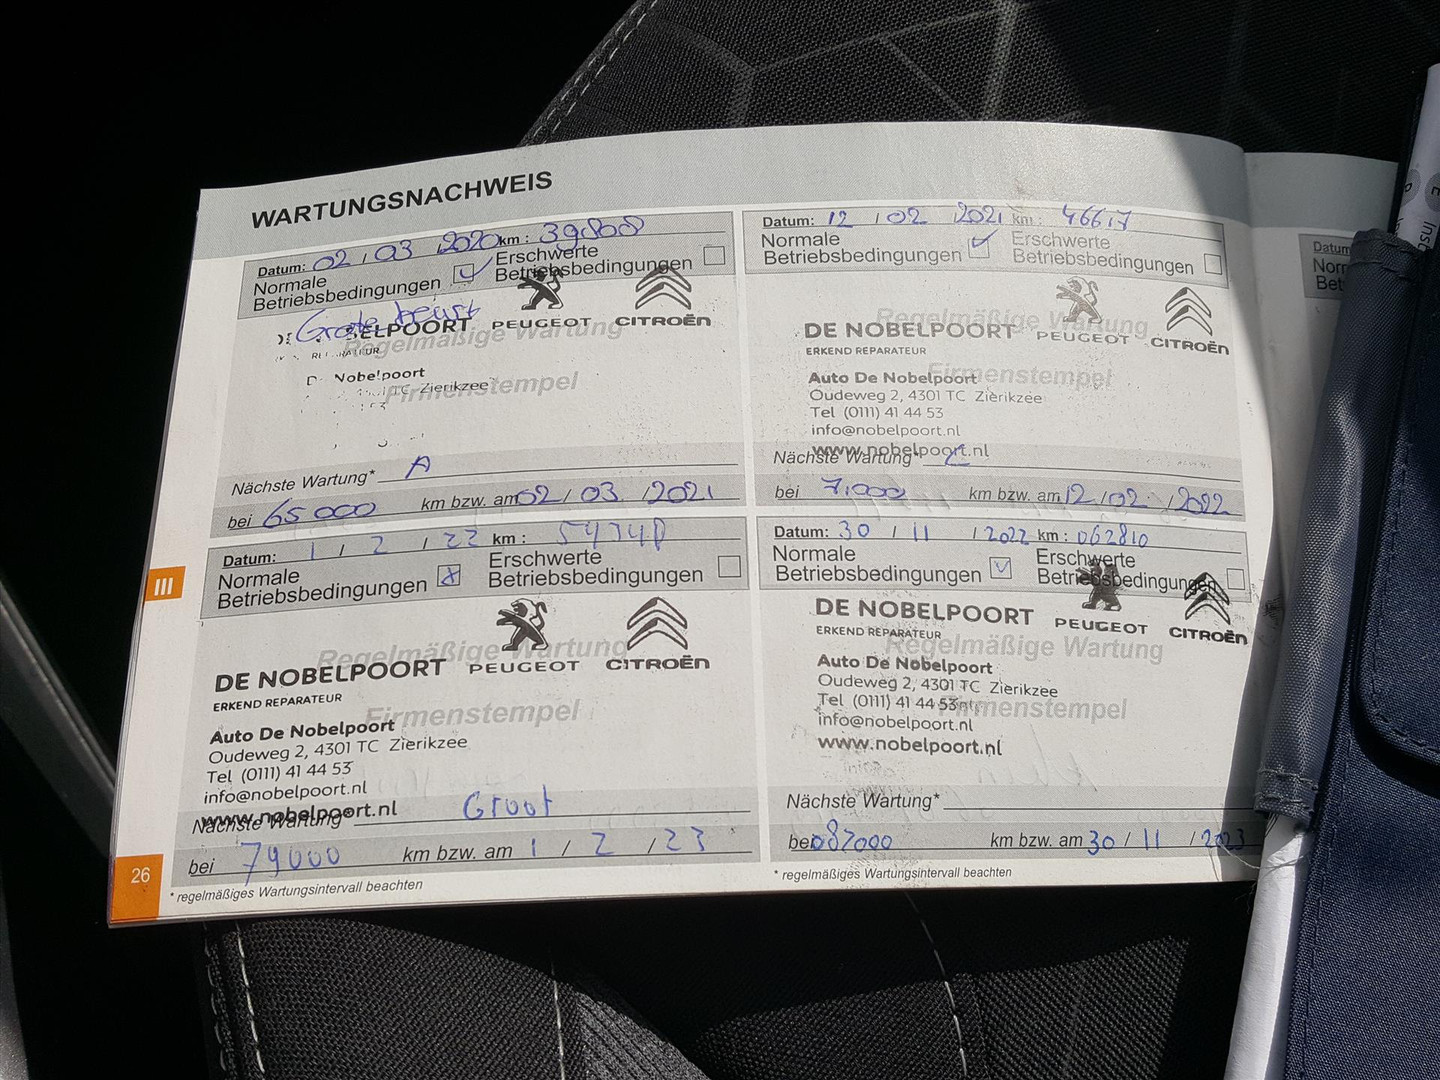 WARTUNGSNACHWEIS
Datum: 02 / 03 2020 km : 39.808
Normale Betriebsbedingungen
Erschwerte Betriebsbedingungen
Grote beurt
ELPOORT PEUGEOT CITROËN
Regelmäßige Wartung
Nobelpoort
TC Zierikzee
Firmenstempel
Nächste Wartung* A
bei 65000 km bzw. am 02 / 03 / 2021
Datum: 12 / 02 2021 km :
Normale Betriebsbedingungen
Erschwerte Betriebsbedingungen
Regelmäßige Wartung
DE NOBELPOORT PEUGEOT CITROËN
ERKEND REPARATEUR
Firmenstempel
Auto De Nobelpoort
Oudeweg 2, 4301 TC Zierikzee
Tel (0111) 41 44 53
info@nobelpoort.nl
www.nobelpoort.nl
Nächste Wartung*
bei 71.000 km bzw. am 12 / 02 / 2022
Datum: 1 / 2 / 22 km :
Normale Betriebsbedingungen
Erschwerte Betriebsbedingungen
Regelmäßige Wartung
DE NOBELPOORT PEUGEOT CITROËN
ERKEND REPARATEUR
Firmenstempel
Auto De Nobelpoort
Oudeweg 2, 4301 TC Zierikzee
Tel (0111) 41 44 53
info@nobelpoort.nl
www.nobelpoort.nl
Nächste Wartung* Groot
bei 79000 km bzw. am 1 / 2 / 23
Datum: 30 / 11 / 2022 km : 062810
Normale Betriebsbedingungen
Erschwerte Betriebsbedingungen
DE NOBELPOORT PEUGEOT CITROËN
ERKEND REPARATEUR
Regelmäßige Wartung
Auto De Nobelpoort
Oudeweg 2, 4301 TC Zierikzee
Tel (0111) 41 44 53
Firmenstempel
info@nobelpoort.nl
www.nobelpoort.nl
Nächste Wartung*
bei 082000 km bzw. am 30 / 11 / 2023
* regelmäßiges Wartungsintervall beachten
* regelmäßiges Wartungsintervall beachten
III
26
Datum